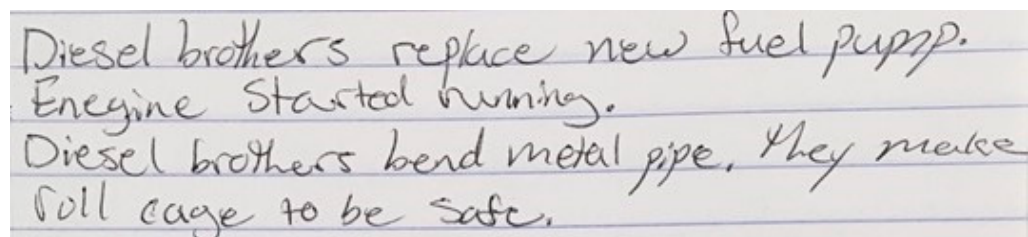 Diesel brothers replace new fuel pump.
Enegine Started running.
Diesel brothers bend metal pipe. They make
roll cage to be safe.